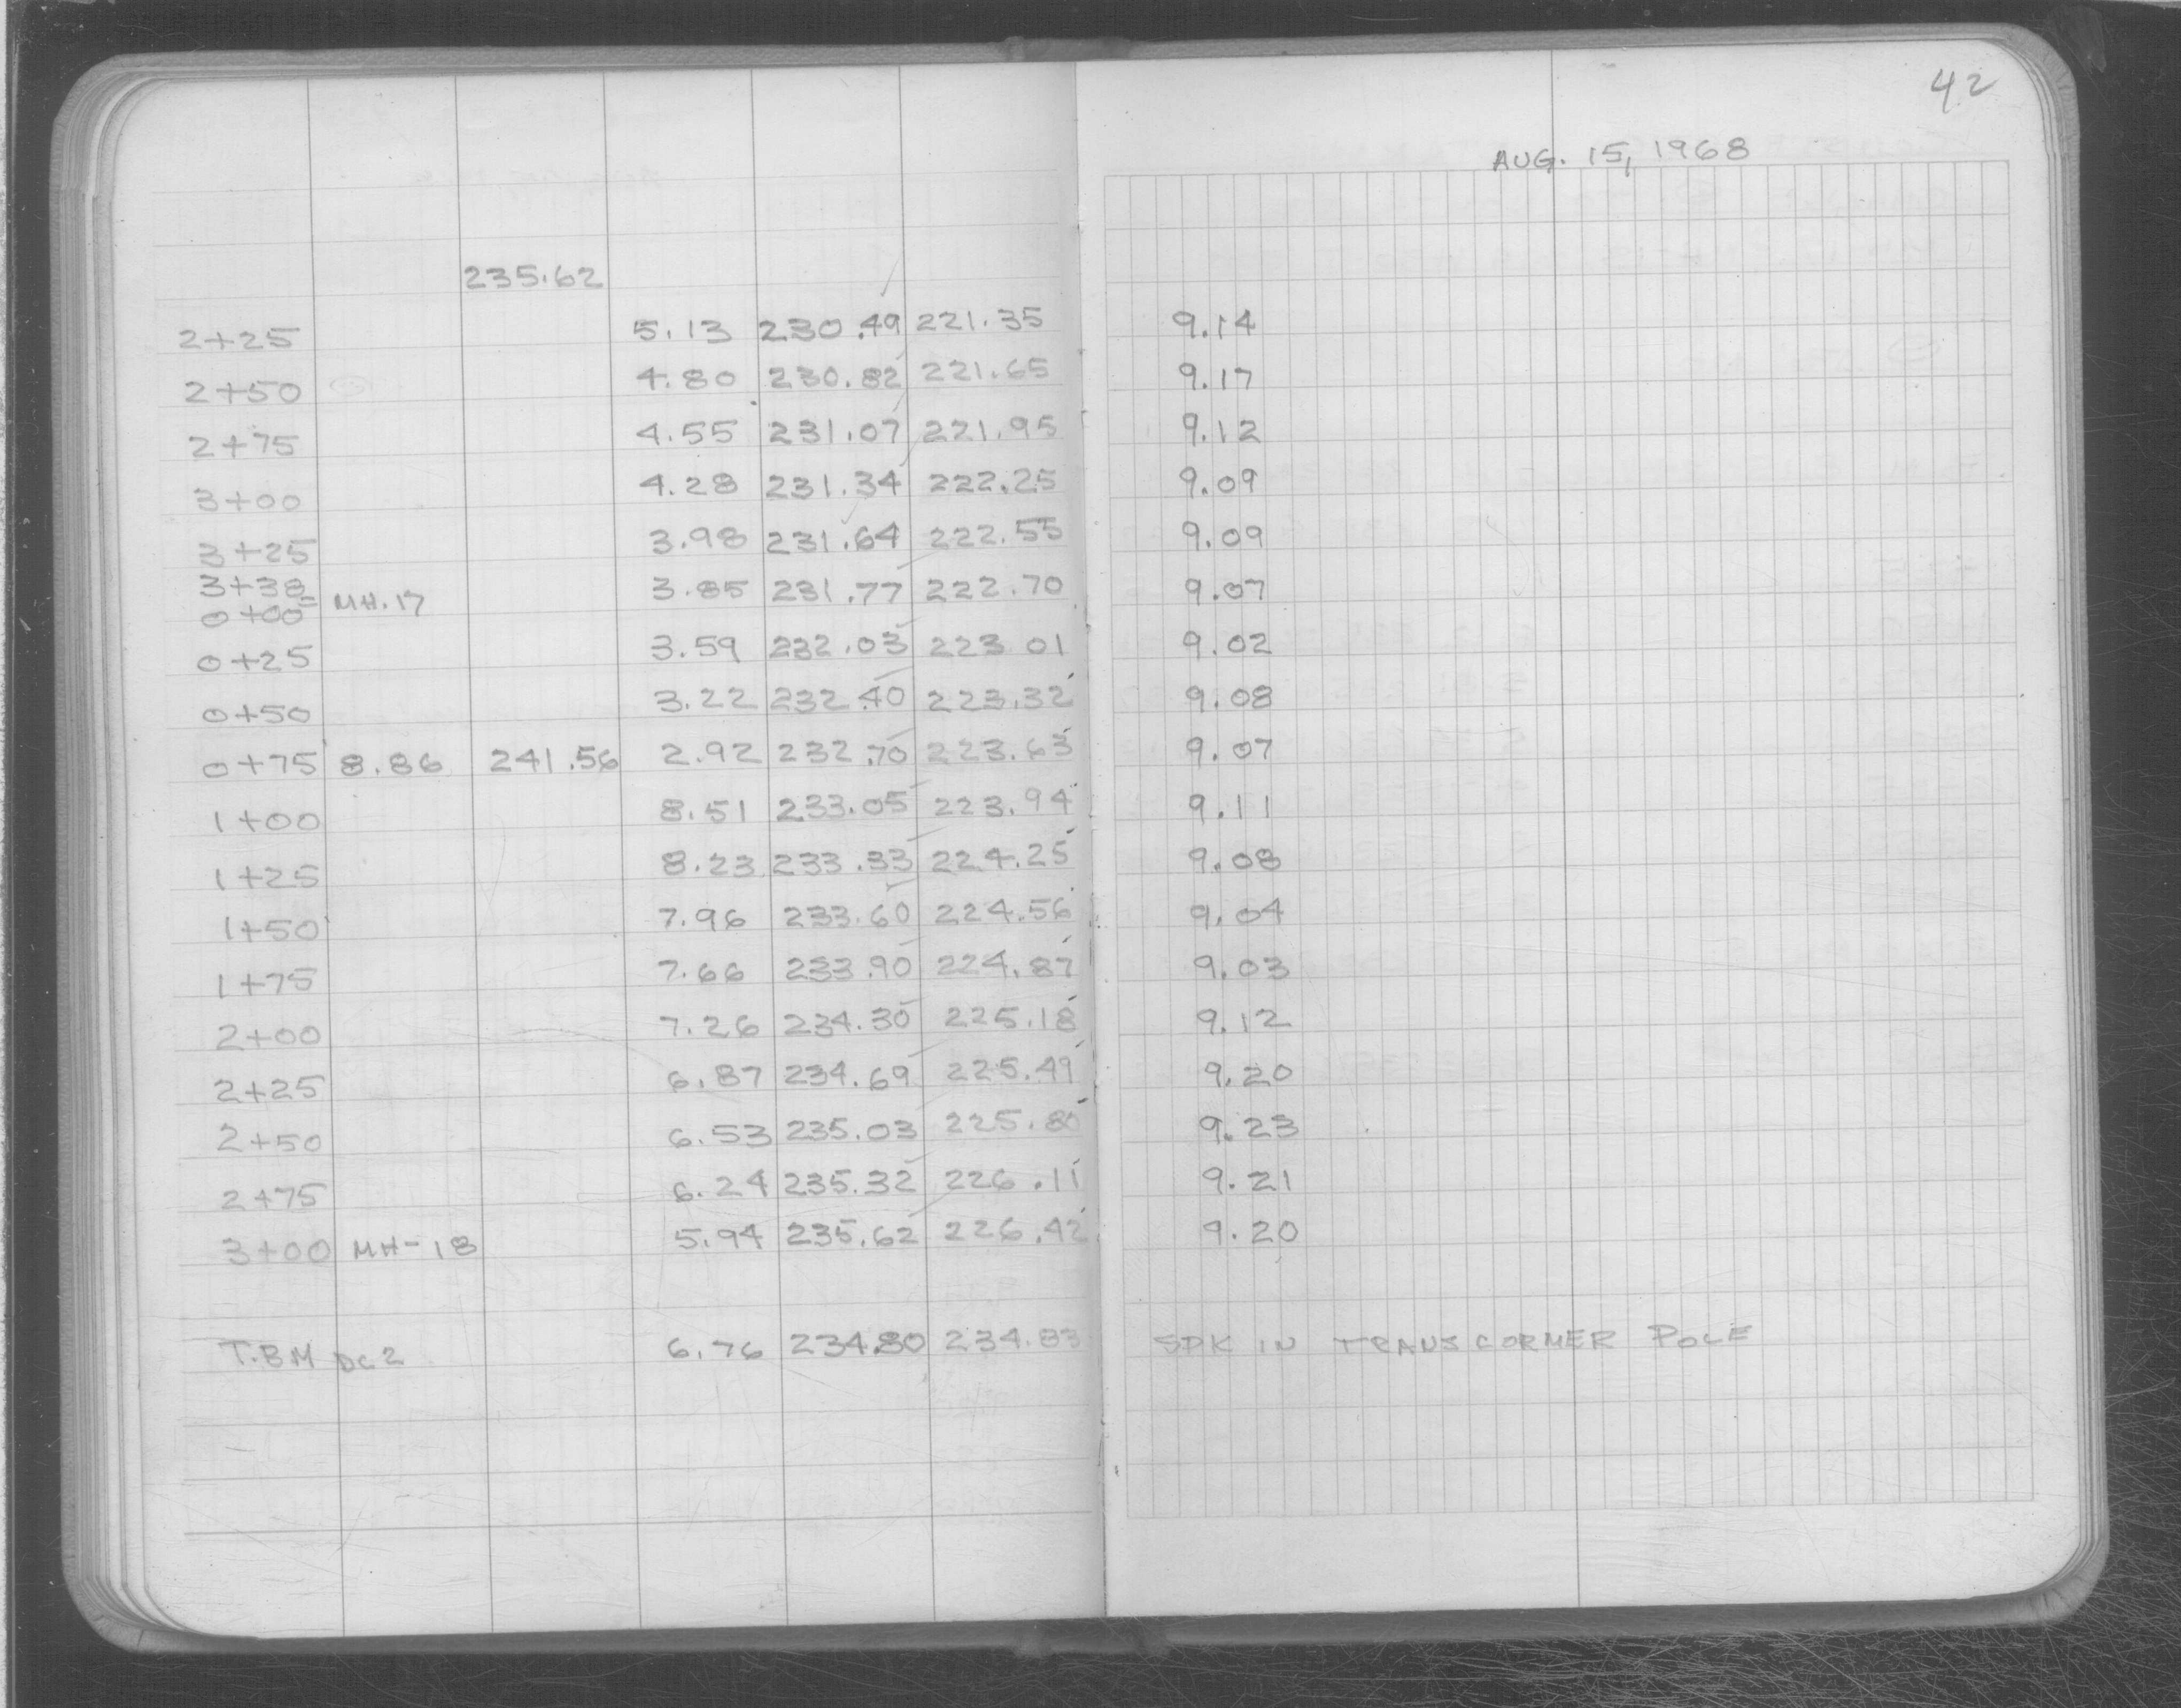 42
AUG. 15, 1968
235.62
2+25 5.13 230.49 221.35 9.14
2+50 4.80 230.82 221.65 9.17
2+75 4.55 231.07 221.95 9.12
3+00 4.28 231.34 222.25 9.09
3+25 3.98 231.64 222.55 9.09
3+38 3.85 231.77 222.70 9.07
0+00= MH.17
0+25 3.59 232.03 223 01 9.02
0+50 3.22 232.40 223.32 9.08
0+75 8.86 241.56 2.92 232.70 223.63 9.07
1+00 8.51 233.05 223.94 9.11
1+25 8.23 233.33 224.25 9.08
1+50 7.96 233.60 224.56 9.04
1+75 7.66 233.90 224.87 9.03
2+00 7.26 234.30 225.18 9.12
2+25 6.87 234.69 225.49 9.20
2+50 6.53 235.03 225.80 9.23
2+75 6.24 235.32 226.11 9.21
3+00 MH-18 5.94 235.62 226.42 9.20
T.BM 6.76 234.80 234.83 SPK IN TRANSFORMER POLE